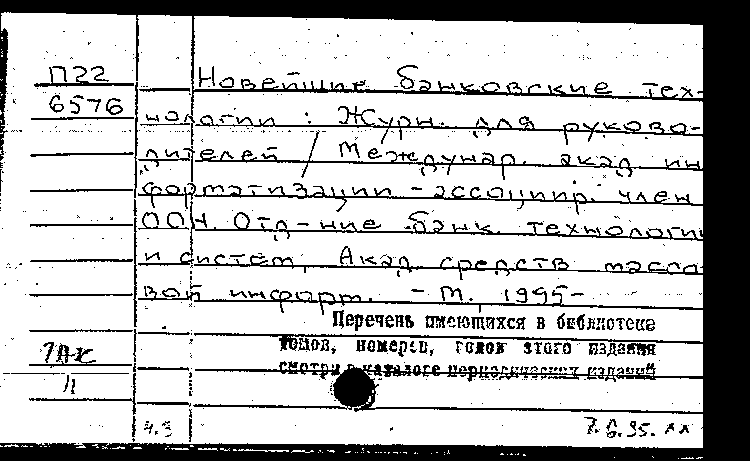 П22
6576
Новейшие банковские тех-
нологии : Журн. для руково-
дителей / Междунар. акад. ин
форматизации - ассоциир. член
ООН. Отд-ние банк. технологи
и систем, Акад. средств массо
вой информ. - М., 1995-
Перечень имеющихся в библиотеке
томов, номеров, годов этого издания
смотри в каталоге периодических изданий
4.3
7.6.95.